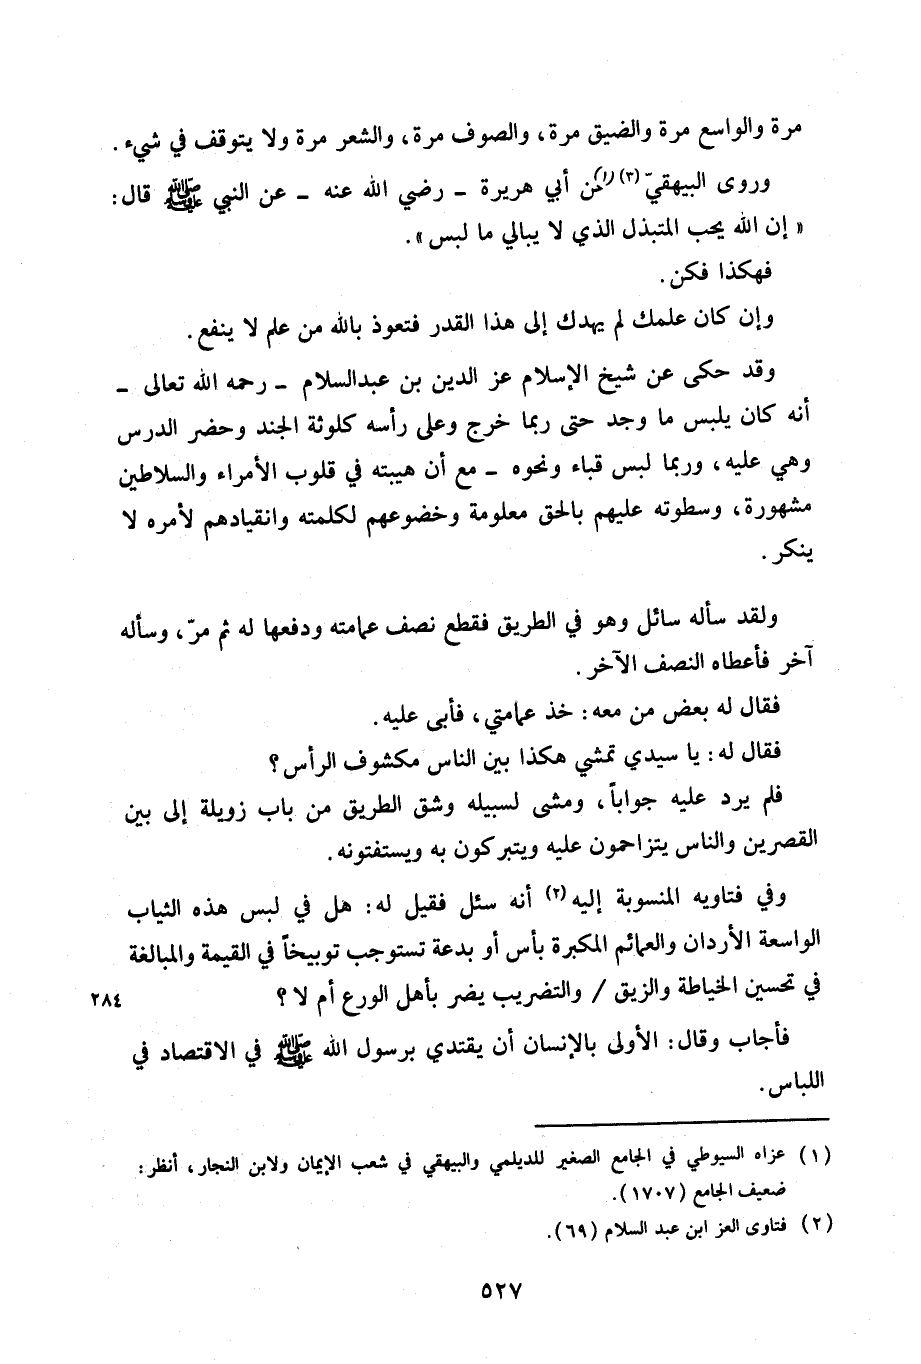 مرة والواسع مرة والضيق مرة، والصوف مرة، والشعر مرة ولا يتوقف في شيء.
وروى البيهقيّ (٣) (١) عن أبي هريرة ـ رضي الله عنه ـ عن النبي ﷺ قال:
« إن الله يحب المتبذل الذي لا يبالي ما لبس ».
فهكذا فكن.
وإن كان علمك لم يهدك إلى هذا القدر فتعوذ بالله من علم لا ينفع.
وقد حكى عن شيخ الإسلام عز الدين بن عبدالسلام ـ رحمه الله تعالى ـ
أنه كان يلبس ما وجد حتى ربما خرج وعلى رأسه كلوثة الجند وحضر الدرس
وهي عليه، وربما لبس قباء ونحوه ـ مع أن هيبته في قلوب الأمراء والسلاطين
مشهورة، وسطوته عليهم بالحق معلومة وخضوعهم لكلمته وانقيادهم لأمره لا
ينكر.
ولقد سأله سائل وهو في الطريق فقطع نصف عمامته ودفعها له ثم مرّ، وسأله
آخر فأعطاه النصف الآخر.
فقال له بعض من معه: خذ عمامتي، فأبى عليه.
فقال له: يا سيدي تمشي هكذا بين الناس مكشوف الرأس؟
فلم يرد عليه جواباً، ومشى لسبيله وشق الطريق من باب زويلة إلى بين
القصرين والناس يتزاحمون عليه ويتبركون به ويستفتونه.
وفي فتاويه المنسوبة إليه (٢) أنه سئل فقيل له: هل في لبس هذه الثياب
الواسعة الأردان والعمائم المكبرة بأس أو بدعة تستوجب توبيخاً في القيمة والمبالغة
في تحسين الخياطة والزيق / والتضريب يضر بأهل الورع أم لا؟ ٢٨٤
فأجاب وقال: الأولى بالإنسان أن يقتدي برسول الله ﷺ في الاقتصاد في
اللباس.
(١) عزاه السيوطي في الجامع الصغير للديلمي والبيهقي في شعب الإيمان ولابن النجار، أنظر:
ضعيف الجامع (١٧٠٧).
(٢) فتاوى العز ابن عبد السلام (٦٩).
٥٢٧